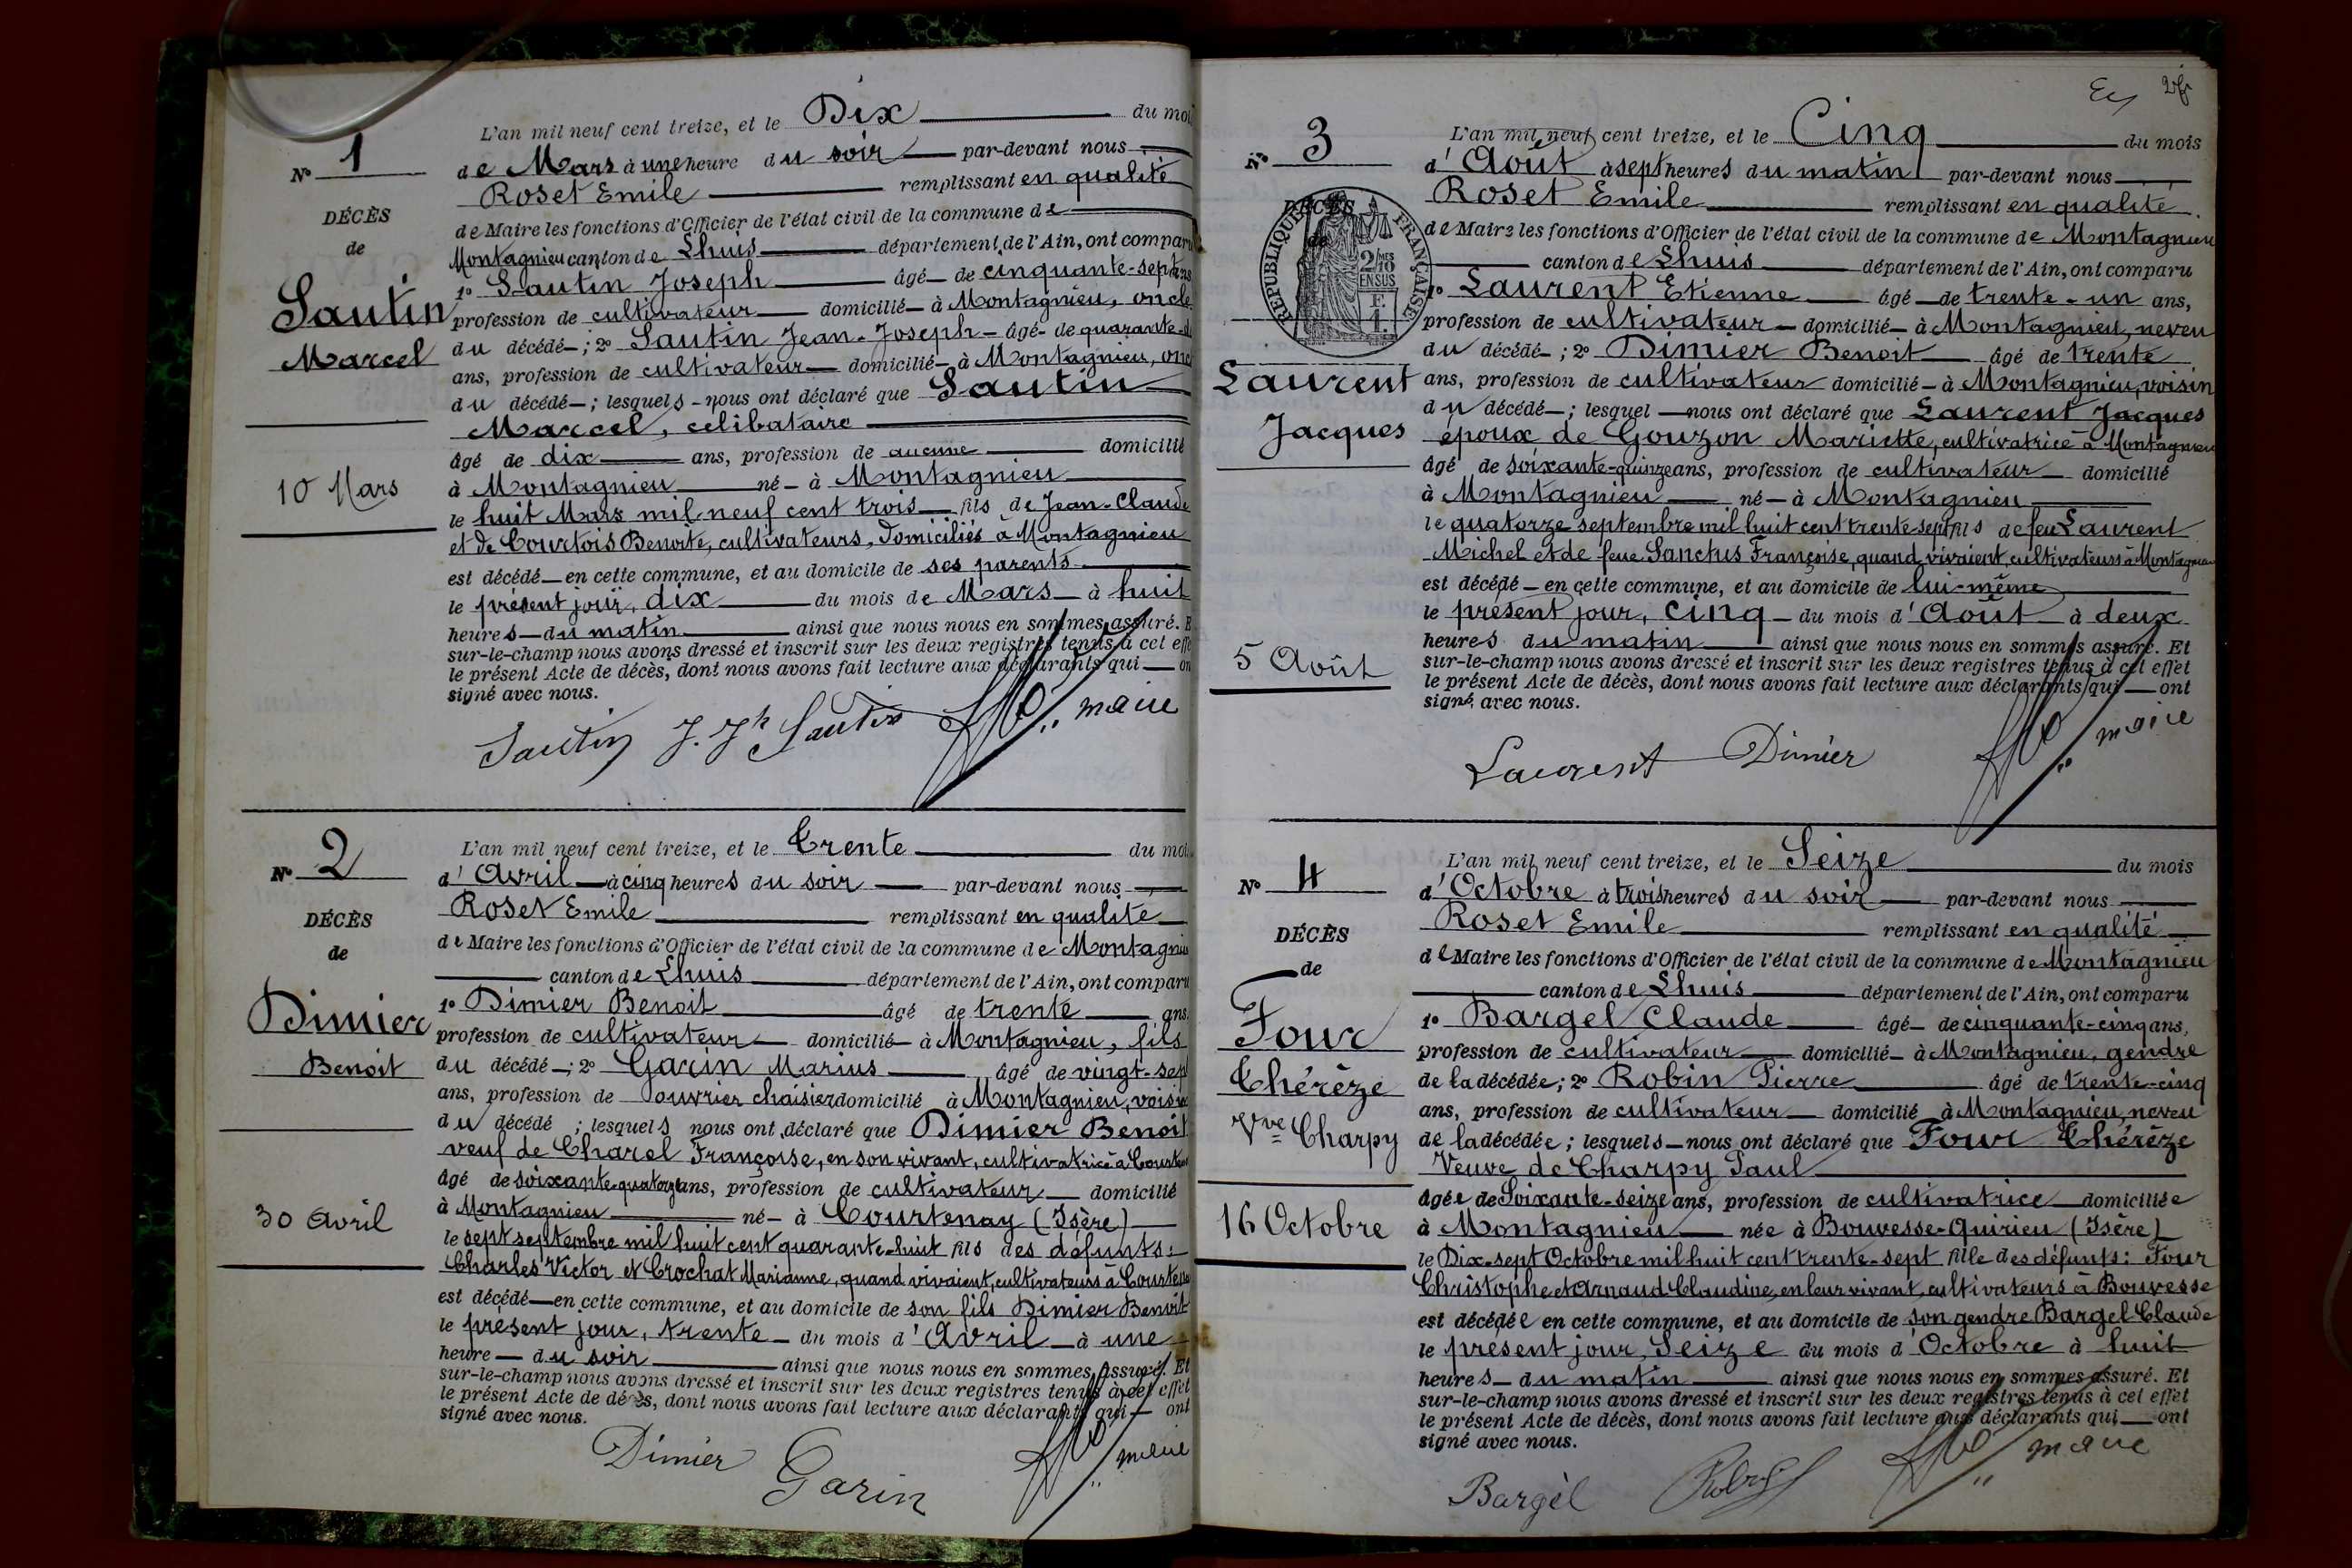 N° 1
DÉCÈS
de
Sautin
Marcel
10 Mars
L'an mil neuf cent treize, et le Dix du moi
de Mars à une heure du soir par-devant nous
Roset Emile remplissant en qualité
de Maire les fonctions d'Officier de l'état civil de la commune de
Montagnieu canton de Lhuis département de l'Ain, ont comparu
1° Sautin Joseph âgé de cinquante-sept ans
profession de cultivateur domicilié à Montagnieu, oncle
du décédé ; 2° Sautin Jean-Joseph âgé de quarante-
ans, profession de cultivateur domicilié à Montagnieu, onc
du décédé ; lesquels nous ont déclaré que Sautin
Marcel, celibataire
âgé de dix ans, profession de aucune domicilié
à Montagnieu né à Montagnieu
le huit Mars mil neuf cent trois fils de Jean-Claude
et de Courtois Benoite, cultivateurs, domiciliés à Montagnieu
est décédé en cette commune, et au domicile de ses parents
le présent jour, dix du mois de Mars à huit
heures du matin ainsi que nous nous en sommes assuré. E
sur-le-champ nous avons dressé et inscrit sur les deux registres tenus à cet effe
le présent Acte de décès, dont nous avons fait lecture aux déclarants qui on
signé avec nous.
Sautin J. Jh Sautin maire
N° 2
DÉCÈS
de
Dimier
Benoit
30 Avril
L'an mil neuf cent treize, et le Trente du moi
d'Avril à cinq heures du soir par-devant nous
Roset Emile remplissant en qualité
de Maire les fonctions d'Officier de l'état civil de la commune de Montagnieu
canton de Lhuis département de l'Ain, ont comparu
1° Dimier Benoit âgé de trente ans.
profession de cultivateur domicilié à Montagnieu, fils
du décédé ; 2° Garin Marius âgé de vingt-sept
ans, profession de ouvrier chaisier domicilié à Montagnieu, voisin
du décédé ; lesquels nous ont déclaré que Dimier Benoit
veuf de Charel Françoise, en son vivant, cultivatrice à Courten
âgé de soixante-quatorze ans, profession de cultivateur domicilié
à Montagnieu né à Courtenay (Isère)
le sept septembre mil huit cent quarante-huit fils des défunts :
Charles Victor et Crochat Marianne, quand vivaient, cultivateurs à Courtenay
est décédé en cette commune, et au domicile de son fils Dimier Benoit
le présent jour, trente du mois d'Avril à une
heure du soir ainsi que nous nous en sommes assuré. Et
sur-le-champ nous avons dressé et inscrit sur les deux registres tenus à cet effet
le présent Acte de décès, dont nous avons fait lecture aux déclarants qui ont
signé avec nous.
Dimier Garin maire
N° 3
DÉCÈS
de
RÉPUBLIQUE FRANÇAISE
2/10MES
EN SUS
Laurent
Jacques
5 Août
L'an mil neuf cent treize, et le Cinq du mois
d'Août à sept heures du matin par-devant nous
Roset Emile remplissant en qualité
de Maire les fonctions d'Officier de l'état civil de la commune de Montagnieu
canton de Lhuis département de l'Ain, ont comparu
1° Laurent Etienne âgé de trente-un ans,
profession de cultivateur domicilié à Montagnieu, neveu
du décédé ; 2° Dimier Benoit âgé de trente
ans, profession de cultivateur domicilié à Montagnieu, voisin
du décédé ; lesquel nous ont déclaré que Laurent Jacques
époux de Gouzon Mariette, cultivatrice à Montagnieu
âgé de soixante-quinze ans, profession de cultivateur domicilié
à Montagnieu né à Montagnieu
le quatorze septembre mil huit cent trente-sept fils de feu Laurent
Michel et de feue Sanctus Françoise, quand vivaient, cultivateurs à Montagnieu
est décédé en cette commune, et au domicile de lui-même
le présent jour, cinq du mois d'Août à deux
heures du matin ainsi que nous nous en sommes assuré. Et
sur-le-champ nous avons dressé et inscrit sur les deux registres tenus à cet effet
le présent Acte de décès, dont nous avons fait lecture aux déclarants qui ont
signé avec nous.
Laurent Dimier maire
N° 4
DÉCÈS
de
Four
Thérèze
Vve Charpy
16 Octobre
L'an mil neuf cent treize, et le Seize du mois
d'Octobre à trois heures du soir par-devant nous
Roset Emile remplissant en qualité
de Maire les fonctions d'Officier de l'état civil de la commune de Montagnieu
canton de Lhuis département de l'Ain, ont comparu
1° Bargel Claude âgé de cinquante-cinq ans,
profession de cultivateur domicilié à Montagnieu, gendre
de la décédée ; 2° Robin Pierre âgé de trente-cinq
ans, profession de cultivateur domicilié à Montagnieu, neveu
de la décédée ; lesquels nous ont déclaré que Four Thérèze
Veuve de Charpy Paul
âgée de Soixante-seize ans, profession de cultivatrice domiciliée
à Montagnieu née à Bouvesse-Quirieu (Isère)
le Dix-sept Octobre mil huit cent trente-sept fille des défunts : Four
Christophe et Arnaud Claudine, en leur vivant, cultivateurs à Bouvesse
est décédée en cette commune, et au domicile de son gendre Bargel Claude
le présent jour, Seize du mois d'Octobre à huit
heures du matin ainsi que nous nous en sommes assuré. Et
sur-le-champ nous avons dressé et inscrit sur les deux registres tenus à cet effet
le présent Acte de décès, dont nous avons fait lecture aux déclarants qui ont
signé avec nous.
Bargel Robin maire